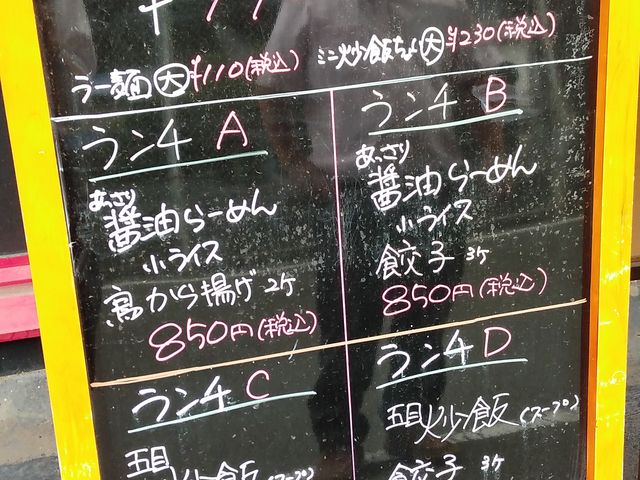 ラー麺大¥110(税込)
ミニ炒飯ちょい大¥230(税込)
ランチ A
あっさり
醤油らーめん
小ライス
鳥から揚げ 2ケ
850円(税込)
ランチ B
あっさり
醤油らーめん
小ライス
餃子 3ケ
850円(税込)
ランチ C
五目炒飯(スープ)
ランチ D
五目炒飯(スープ)
餃子 3ケ